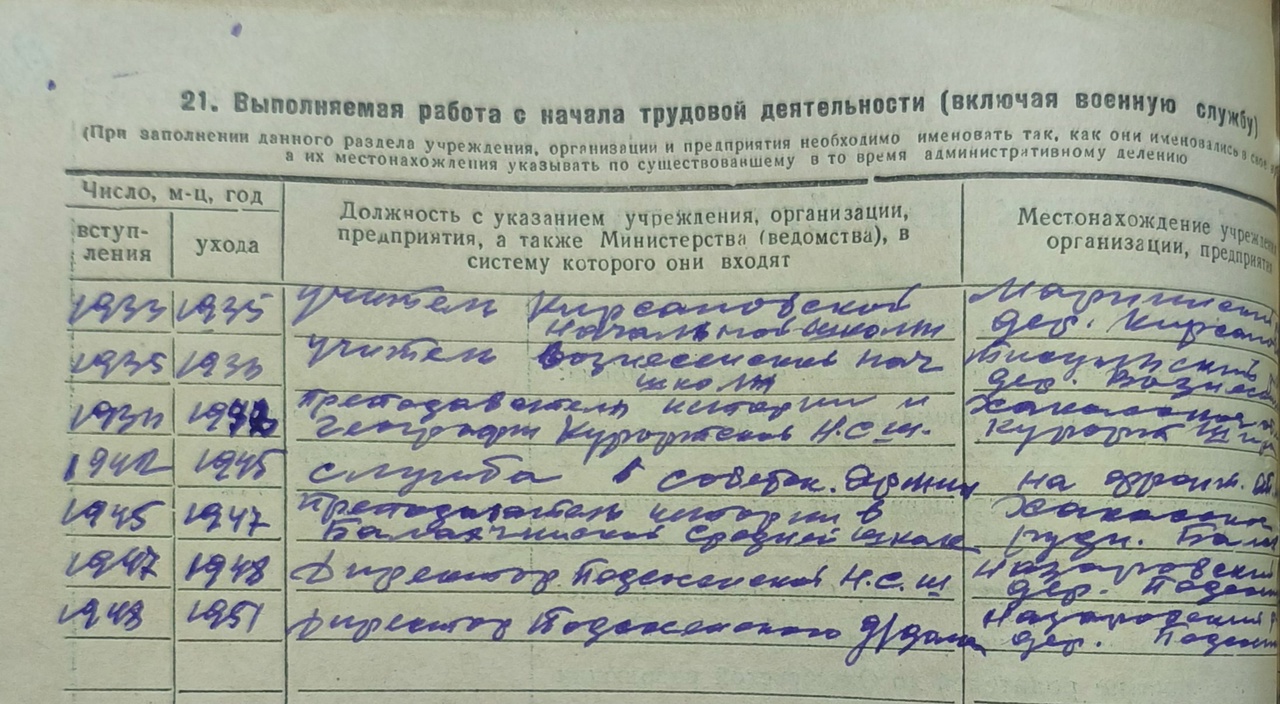 21. Выполняемая работа с начала трудовой деятельности (включая военную службу)
(При заполнении данного раздела учреждения, организации и предприятия необходимо именовать так, как они именовались в свое
а их местонахождения указывать по существовавшему в то время административному делению
Число, м-ц, год
вступ-
ления
ухода
Должность с указанием учреждения, организации,
предприятия, а также Министерства (ведомства), в
систему которого они входят
Местонахождение учрежден
организации, предприятия
1933 1935 учитель Кирсановской Мариинский
начальной школы дер. Кирсано
1935 учитель Вознесенской нач Тисульский
школы дер. Возне
преподаватель истории и
географии Курортской Н.С.Ш. курорт Шира
1942 1945 служба в советск. Армии на фронт.
1945 1947 преподаватель истории в Хакасская
Балахчинской средней школе рудн. Бала
1947 1948 Директор Подсосенской Н.С.Ш Назаровский
дер. Подсосен
1948 1951 Директор Подсосенского д/дома Назаровский
дер. Подсосен